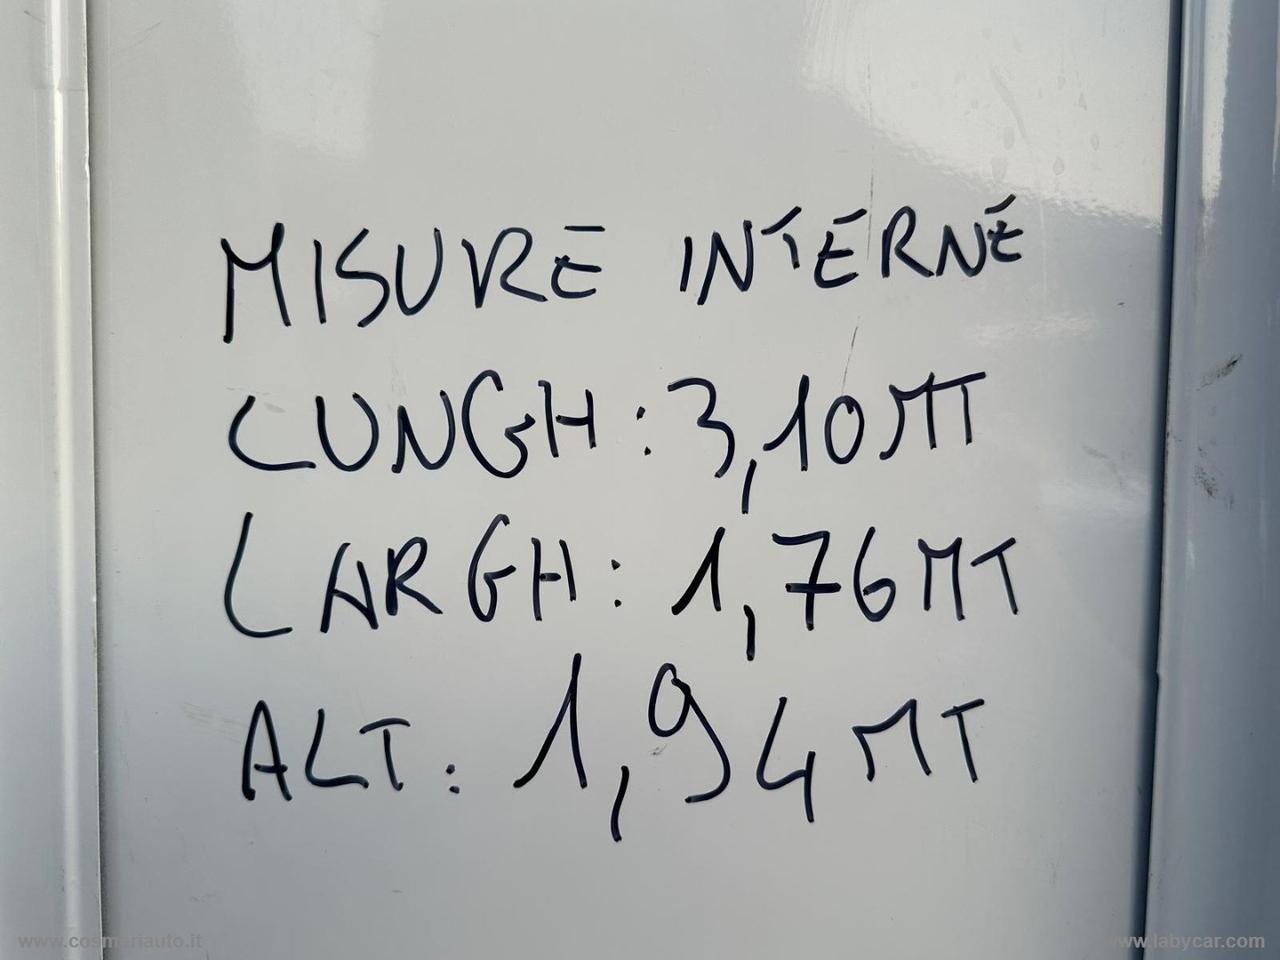 MISURE INTERNE
LUNGH: 3,10 MT
LARGH: 1,76 MT
ALT: 1,94 MT
www.cosmariauto.it
www.labycar.com